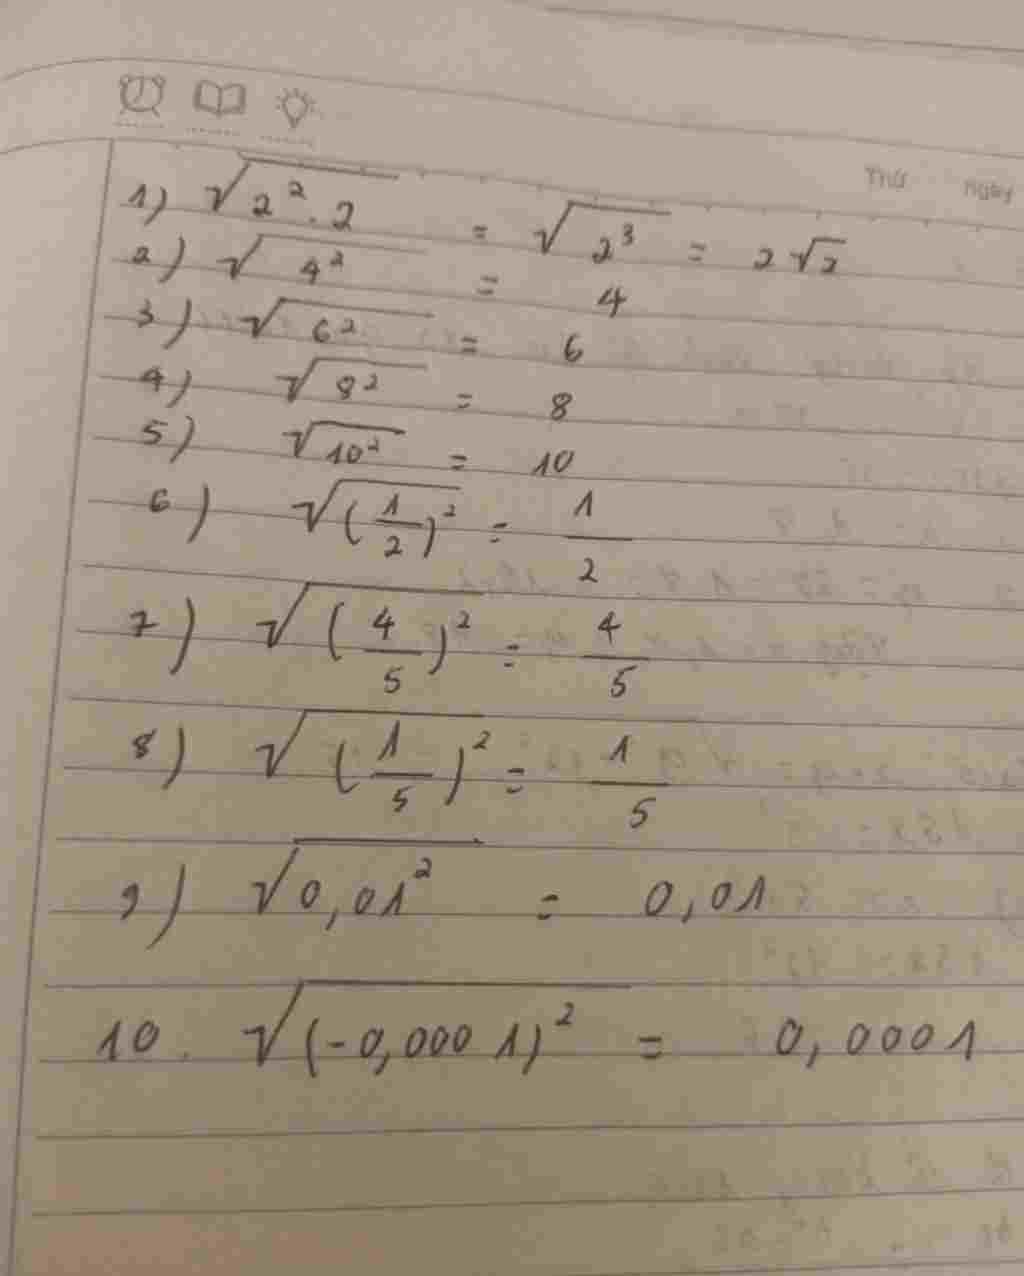 THỨ NGÀY
1) √(2².2) = √(2³) = 2√2
2) √(4²) = 4
3) √(6²) = 6
4) √(8²) = 8
5) √(10²) = 10
6) √((1/2)²) = 1/2
7) √((4/5)²) = 4/5
8) √((1/5)²) = 1/5
9) √(0,01²) = 0,01
10. √((-0,0001)²) = 0,0001